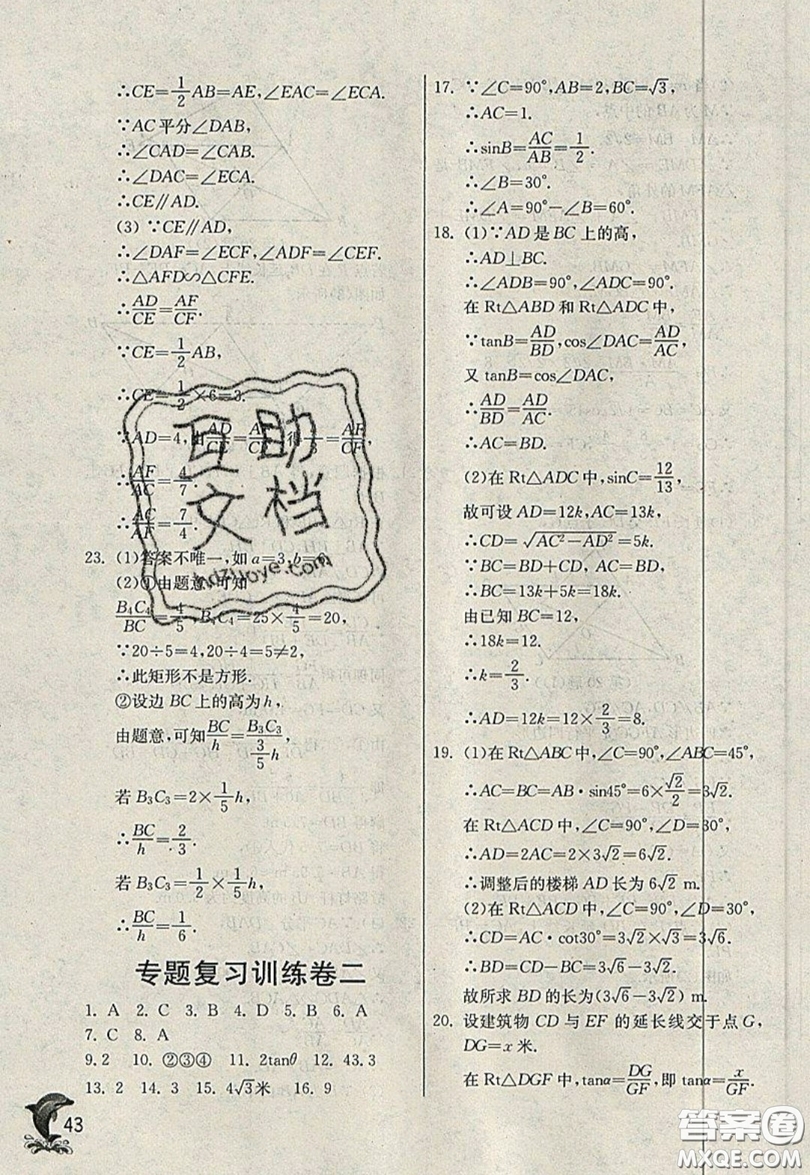 ∴CE=1/2AB=AE,∠EAC=∠ECA.
∵AC平分∠DAB,
∴∠CAD=∠CAB.
∴∠DAC=∠ECA.
∴CE∥AD.
(3) ∵CE∥AD,
∴∠DAF=∠ECF,∠ADF=∠CEF.
∴△AFD∽△CFE.
∴AD/CE=AF/CF.
∵CE=1/2AB,
∴CE=1/2×6=3.
∵AD=4,由AD/CE=AF/CF,得4/3=AF/CF,
∴AF/AC=4/7.
∴AC/AF=7/4.
23. (1)答案不唯一,如a=3,b=
(2)①由题意,可知
B₄C₄/BC=4/5,B₄C₄=25×4/5=20,
∵20÷5=4,20÷4=5≠2,
∴此矩形不是方形.
②设边BC上的高为h,
由题意,可知BC/h=B₃C₃/(3/5),
若B₃C₃=2×1/5h,
∴BC/h=2/3.
若B₃C₃=1/2×1/5h,
∴BC/h=1/6.
专题复习训练卷二
1. A 2. C 3. C 4. D 5. B 6. A
7. C 8. A
9. 2 10. ②③④ 11. 2tanθ 12. 43.3
13. 2 14. 3 15. 4√3米 16. 9
43
17. ∵∠C=90°,AB=2,BC=√3,
∴AC=1.
∴sinB=AC/AB=1/2.
∴∠B=30°.
∴∠A=90°−∠B=60°.
18. (1)∵AD是BC上的高,
∴AD⊥BC.
∴∠ADB=90°,∠ADC=90°.
在Rt△ABD和Rt△ADC中,
∵tanB=AD/BD,cos∠DAC=AD/AC,
又tanB=cos∠DAC,
∴AD/BD=AD/AC.
∴AC=BD.
(2)在Rt△ADC中,sinC=12/13,
故可设AD=12k,AC=13k,
∴CD=√(AC²−AD²)=5k.
∵BC=BD+CD,AC=BD,
∴BC=13k+5k=18k.
由已知BC=12,
∴18k=12.
∴k=2/3.
∴AD=12k=12×2/3=8.
19. (1)在Rt△ABC中,∠C=90°,∠ABC=45°,
∴AC=BC=AB·sin45°=6×√2/2=3√2.
在Rt△ACD中,∠C=90°,∠D=30°,
∴AD=2AC=2×3√2=6√2.
∴调整后的楼梯AD长为6√2 m.
(2)在Rt△ACD中,∠C=90°,∠D=30°,
∴CD=AC·cot30°=3√2×√3=3√6.
∴BD=CD−BC=3√6−3√2.
故所求BD的长为(3√6−3√2)m.
20. 设建筑物CD与EF的延长线交于点G,
DG=x米.
在Rt△DGF中,tanα=DG/GF,即tanα=x/GF.
互助
文档
答案圈
MXQE.COM